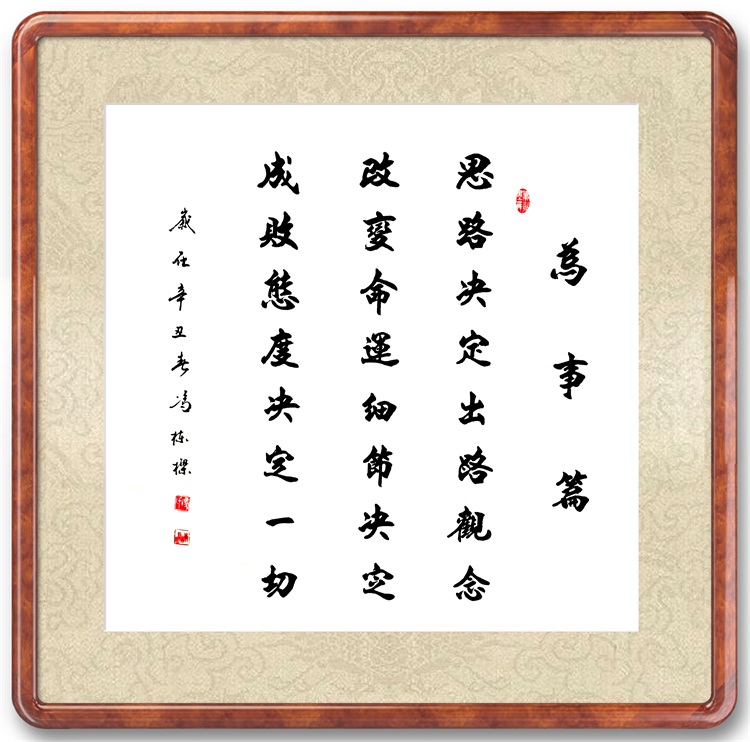 為事篇
思路决定出路觀念
改變命運细節决定
成敗態度决定一切
歲在辛丑春馮栋樑